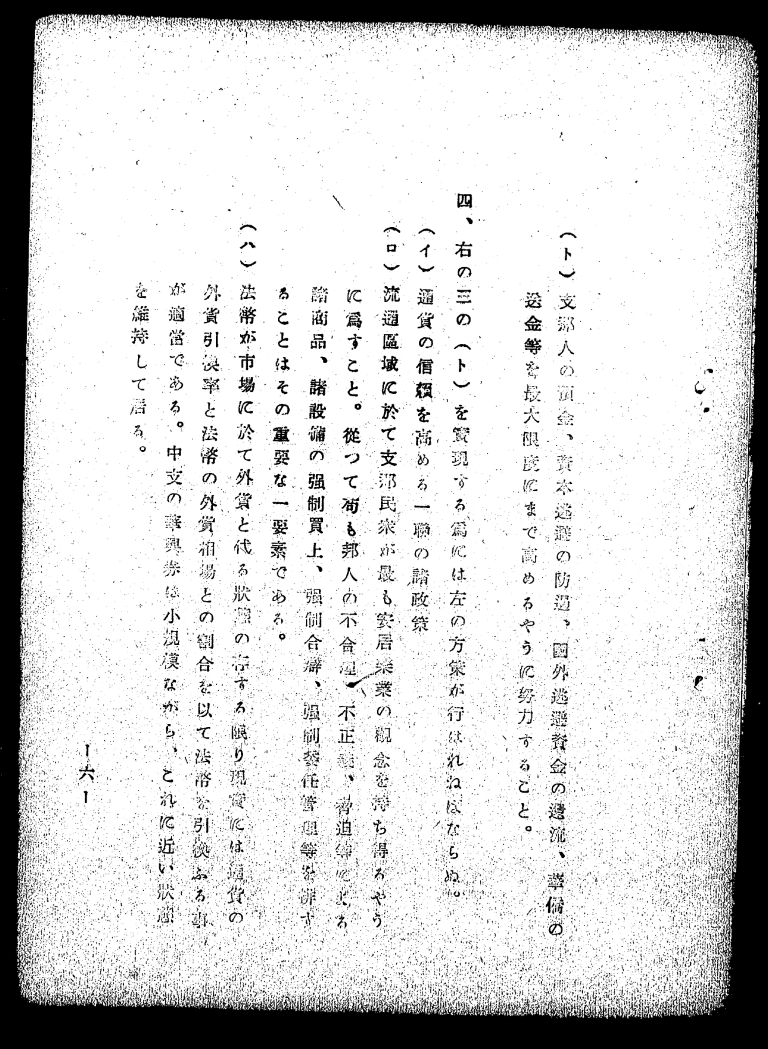 （ト）支那人の預金、資本逃避の防遏、國外逃避資金の還流、華僑の
送金等を最大限度にまで高めるやうに努力すること。
四、右の三の（ト）を實現する爲には左の方策が行はれねばならぬ。
（イ）通貨の信頼を高める一聯の諸政策
（ロ）流通區域に於て支那民衆が最も安居楽業の觀念を持ち得るやう
に爲すこと。從つて苟も邦人の不合理、不正義、脅迫等による
諸商品、諸設備の强制買上、强制合辦、强制委任管理等を排す
ることはその重要な一要素である。
（ハ）法幣が市場に於て外貨と代る狀態の存する限り現實には通貨の
外貨引換率と法幣の外貨相場との割合を以て法幣を引換ふる事
が適當である。中支の華興券は小規模ながら、これに近い狀態
を維持して居る。
ー六ー